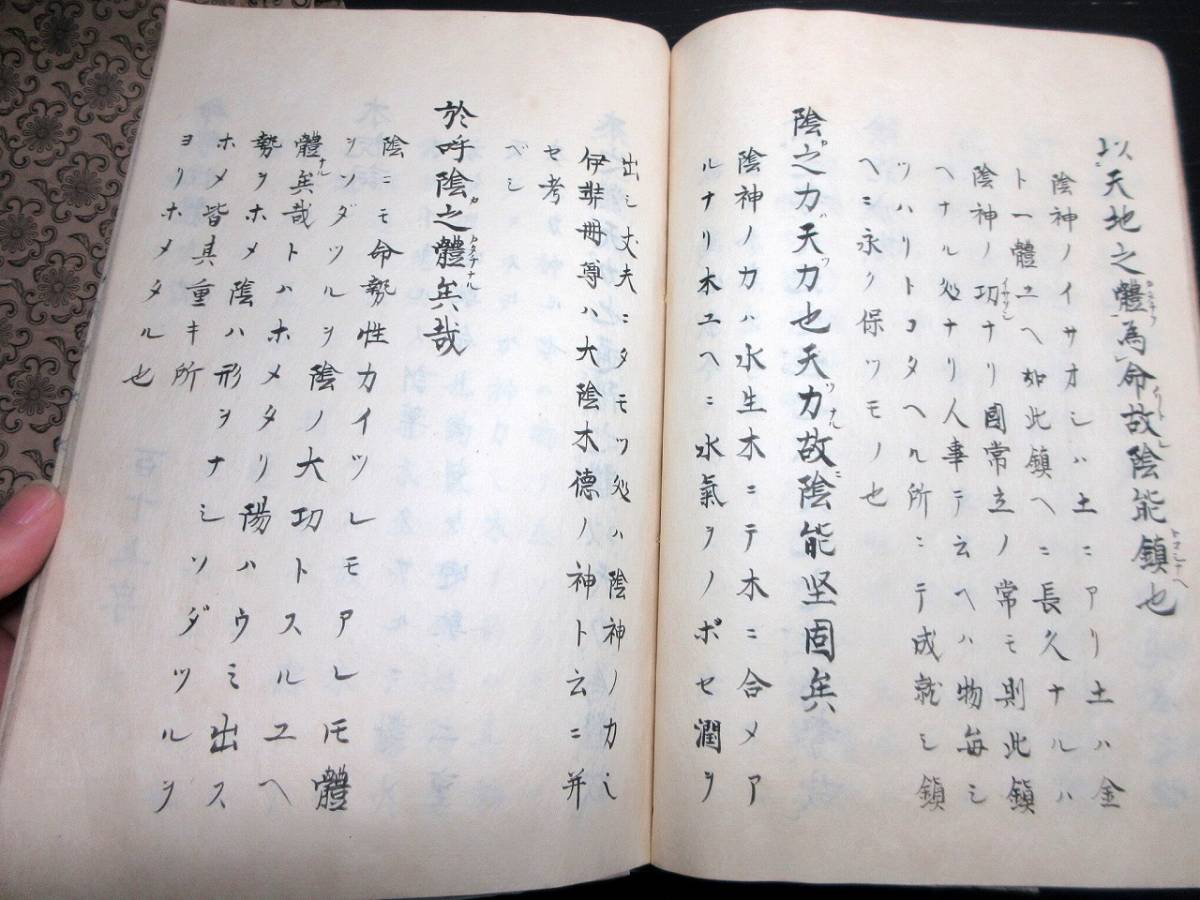 以天地之體為命故陰能鎮也
陰神ノイサオシハ土ニアリ土ハ金
ト一體ユヘ如此鎮ヘニ長久ナルハ
陰神ノ功ナリ國常立ノ常モ則此鎮
ヘナル処ナリ人事テ云ヘハ物毎シ
ツハリトコタヘル所ニテ成就シ鎮
ヘニ永ク保ツモノ也
陰之力天力也天力故陰能坚固矣
陰神ノカハ水生木ニテ木ニ合メア
ルナリ木ユヘニ水氣ヲノボセ潤ヲ
出シ丈夫ニタモツ処ハ陰神ノカシ
伊弉冊尊ハ大陰木德ノ神ト云ニ并
セ考ベシ
於呼陰之體矣哉
陰ニモ命勢性力イツレモアレモ體
ソダツルヲ陰ノ大功トスルユヘ
體矣哉トハホメタリ陽ハウミ出ス
勢ヲホメ陰ハ形ヲナシソダツルヲ
ホメ皆其重キ所
ヨリホメタル也